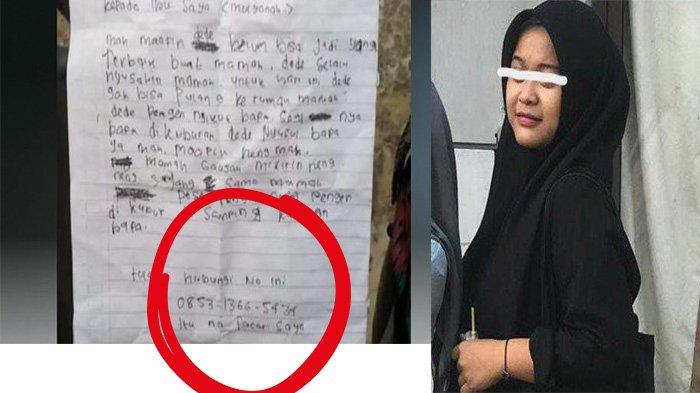 kepada Ibu Saya (
mah maafin dede belum bisa jadi yang
terbaik buat mamah, dede selalu
nyusahin mamah. untuk hari ini, dede
gak bisa pulang ke rumah mamah
dede pengen nyusul bapa nya
bapa di kuburan dede nyusul bapa
ya mah. maafin neng mah.
mamah gausah mikirin neng
neng sayang sama mamah
pengen
di kubur samping kuburan
bapa.
hubungi No ini
0853-1366-5434
itu no pacar saya